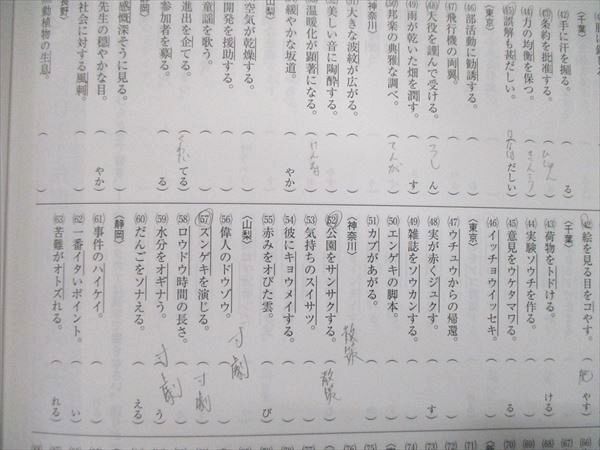 (42) 手に汗を握る。 ( る
(43) 条約を批准する。 ( ひじゅん
(44) 力の均衡を保つ。 ( きんこう
(45) 誤解も甚だしい。 ( はなは だしい
〈東京〉
(46) 部活動に勧誘する。 (
(47) 飛行機の両翼。 (
(48) 大役を謹んで受ける。 ( つつし ん
(49) 雨が乾いた畑を潤す。 ( す
(50) 邦楽の典雅な調べ。 ( てんが
〈神奈川〉
(51) 大きな波紋が広がる。 (
美しい音に陶酔する。 (
温暖化が顕著になる。 ( けんちょ
緩やかな坂道。 ( やか
〈山梨〉
空気が乾燥する。 (
開発を援助する。 (
童謡を歌う。 (
進出を企てる。 ( くわだ てる
参加者を募る。 ( る
〈静岡〉
感慨深そうに見る。 (
先生の穏やかな目。 ( やか
社会に対する風刺。 (
動植物の生息。
(42) 絵を見る目をコやす。 ( 肥 やす
〈千葉〉
(43) 荷物をトドける。 ( ける
(44) 実験ソウチを作る。 (
(45) 意見をウケタマワる。 ( る
(46) イッチョウイッセキ。 (
〈東京〉
(47) ウチュウからの帰還。 (
(48) 実が赤くジュクす。 ( す
(49) 雑誌をソウカンする。 (
(50) エンゲキの脚本。 (
(51) カブがあがる。 (
〈神奈川〉
(52) 公園をサンサクする。 ( 散策
散策
(53) 気持ちのスイサツ。 (
(54) 彼にキョウメイする。 (
(55) 赤みをオびた雲。 ( び
〈山梨〉
(56) 偉人のドウゾウ。 (
寸劇
(57) スンゲキを演じる。 ( 寸劇
(58) ロウドウ時間の長さ。 (
寸劇
(59) 水分をオギナう。 ( う
(60) だんごをソナえる。 ( える
〈静岡〉
(61) 事件のハイケイ。 (
(62) 一番イタいポイント。 ( い
(63) 苦難がオトズれる。 ( れる